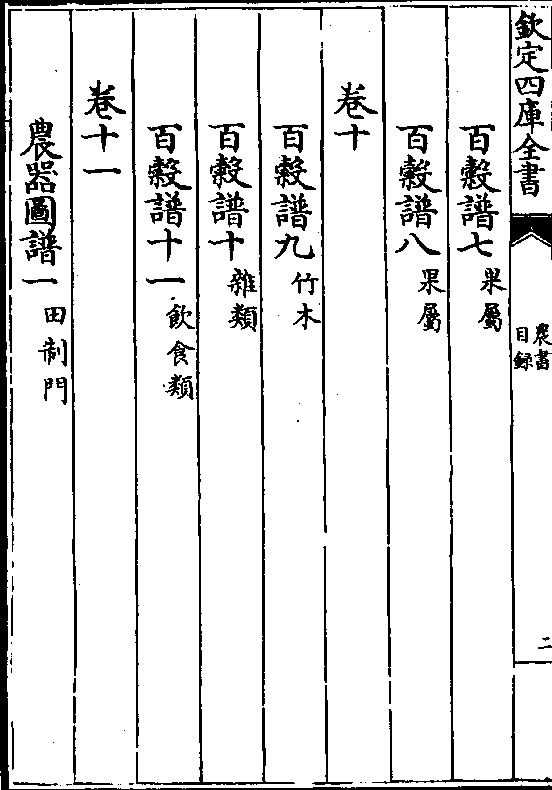 欽定四庫全書
農書
目録
二
百穀譜七果屬
百穀譜八果屬
卷十
百穀譜九竹木
百穀譜十雜類
百穀譜十一飲食類
卷十一
農器圖譜一田制門